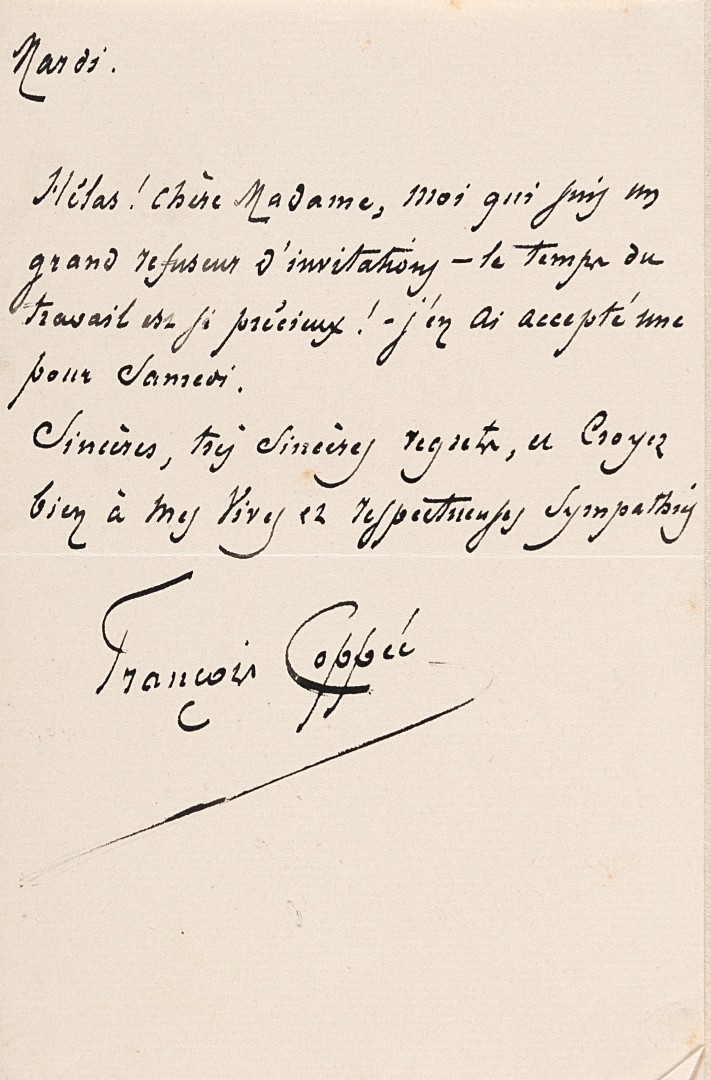 Mardi.
Hélas! chère Madame, moi qui suis un
grand refuseur d'invitations – le temps du
travail est si précieux! – j'en ai accepté une
pour Samedi.
Sincères, très sincères regrets, et croyez
bien à mes vives et respectueuses sympathies
François Coppée